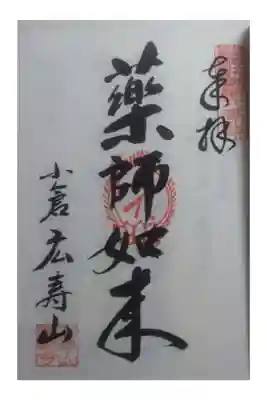 奉拝
薬師如来
小倉広寿山